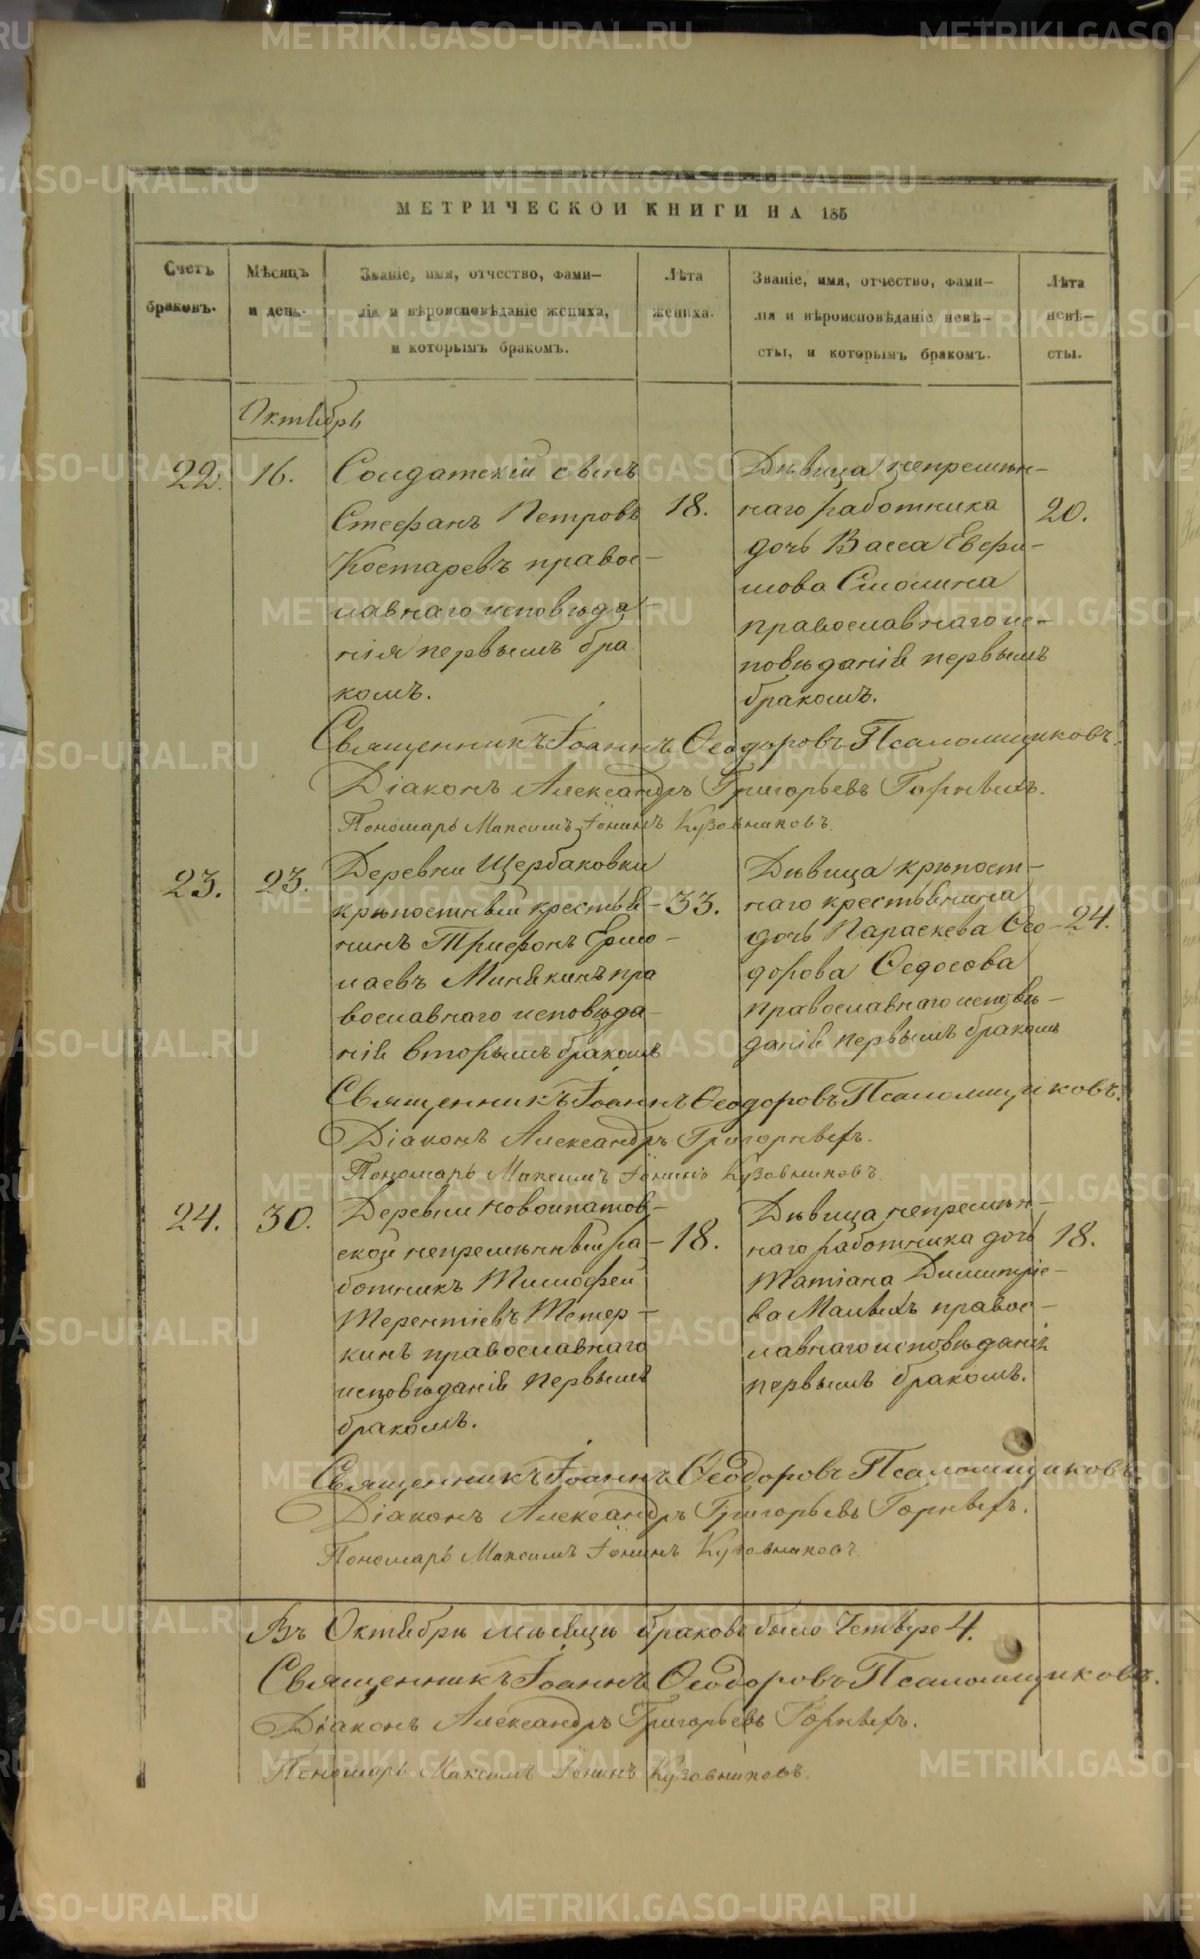 МЕТРИЧЕСКОЙ КНИГИ НА 185
Счетъ браковъ.
Мѣсяцъ и день.
Званіе, имя, отчество, фами-
лія и вѣроисповѣданіе жениха,
и которымъ бракомъ.
Лѣта жениха.
Званіе, имя, отчество, фами-
лія и вѣроисповѣданіе невѣ-
сты, и которымъ бракомъ.
Лѣта невѣ-
сты.
Октябрь
22. 16.
Солдатскій сынъ
Стефанъ Петровъ
Костаревъ правос-
лавнаго исповѣда-
нія первымъ бра
комъ.
18.
Дѣвица непремѣн-
наго работника
дочь Васса Евфи-
мова Смолина
православнаго ис-
повѣданія первымъ
бракомъ.
20.
Священникъ Іоаннъ Ѳеодоровъ Псаломщиковъ.
Діаконъ Александръ Григорьевъ Горныхъ.
Пономарь Максимъ Іонинъ Кузовниковъ.
23. 23.
Деревни Щербаковки
крѣпостный крестья-
нинъ Трифонъ Ермо-
лаевъ Минякинъ пра
вославнаго исповѣда-
нія вторымъ бракомъ
33.
Дѣвица крѣпост-
наго крестьянина
дочь Параскева Ѳео-
дорова Ѳедосова
православнаго исповѣ-
данія первымъ бракомъ
24.
Священникъ Іоаннъ Ѳеодоровъ Псаломщиковъ.
Діаконъ Александръ Григорныхъ.
Пономарь Максимъ Іонинъ Кузовниковъ.
24. 30.
Деревни Новоипатов-
ской непремѣнный ра-
ботникъ Тимофей
Терентіевъ Тетер-
кинъ православнаго
исповѣданія первымъ
бракомъ.
18.
Дѣвица непремѣн-
наго работника дочь
Татіана Димитріе-
ва Малыхъ правос-
лавнаго исповѣданія
первымъ бракомъ.
18.
Священникъ Іоаннъ Ѳеодоровъ Псаломщиковъ.
Діаконъ Александръ Григорьевъ Горныхъ.
Пономарь Максимъ Іонинъ Кузовниковъ.
Въ Октябрѣ мѣсяцѣ браковъ было Четверо 4.
Священникъ Іоаннъ Ѳеодоровъ Псаломщиковъ.
Діаконъ Александръ Григорьевъ Горныхъ.
Пономарь Максимъ Іонинъ Кузовниковъ.
METRIKI.GASO-URAL.RU